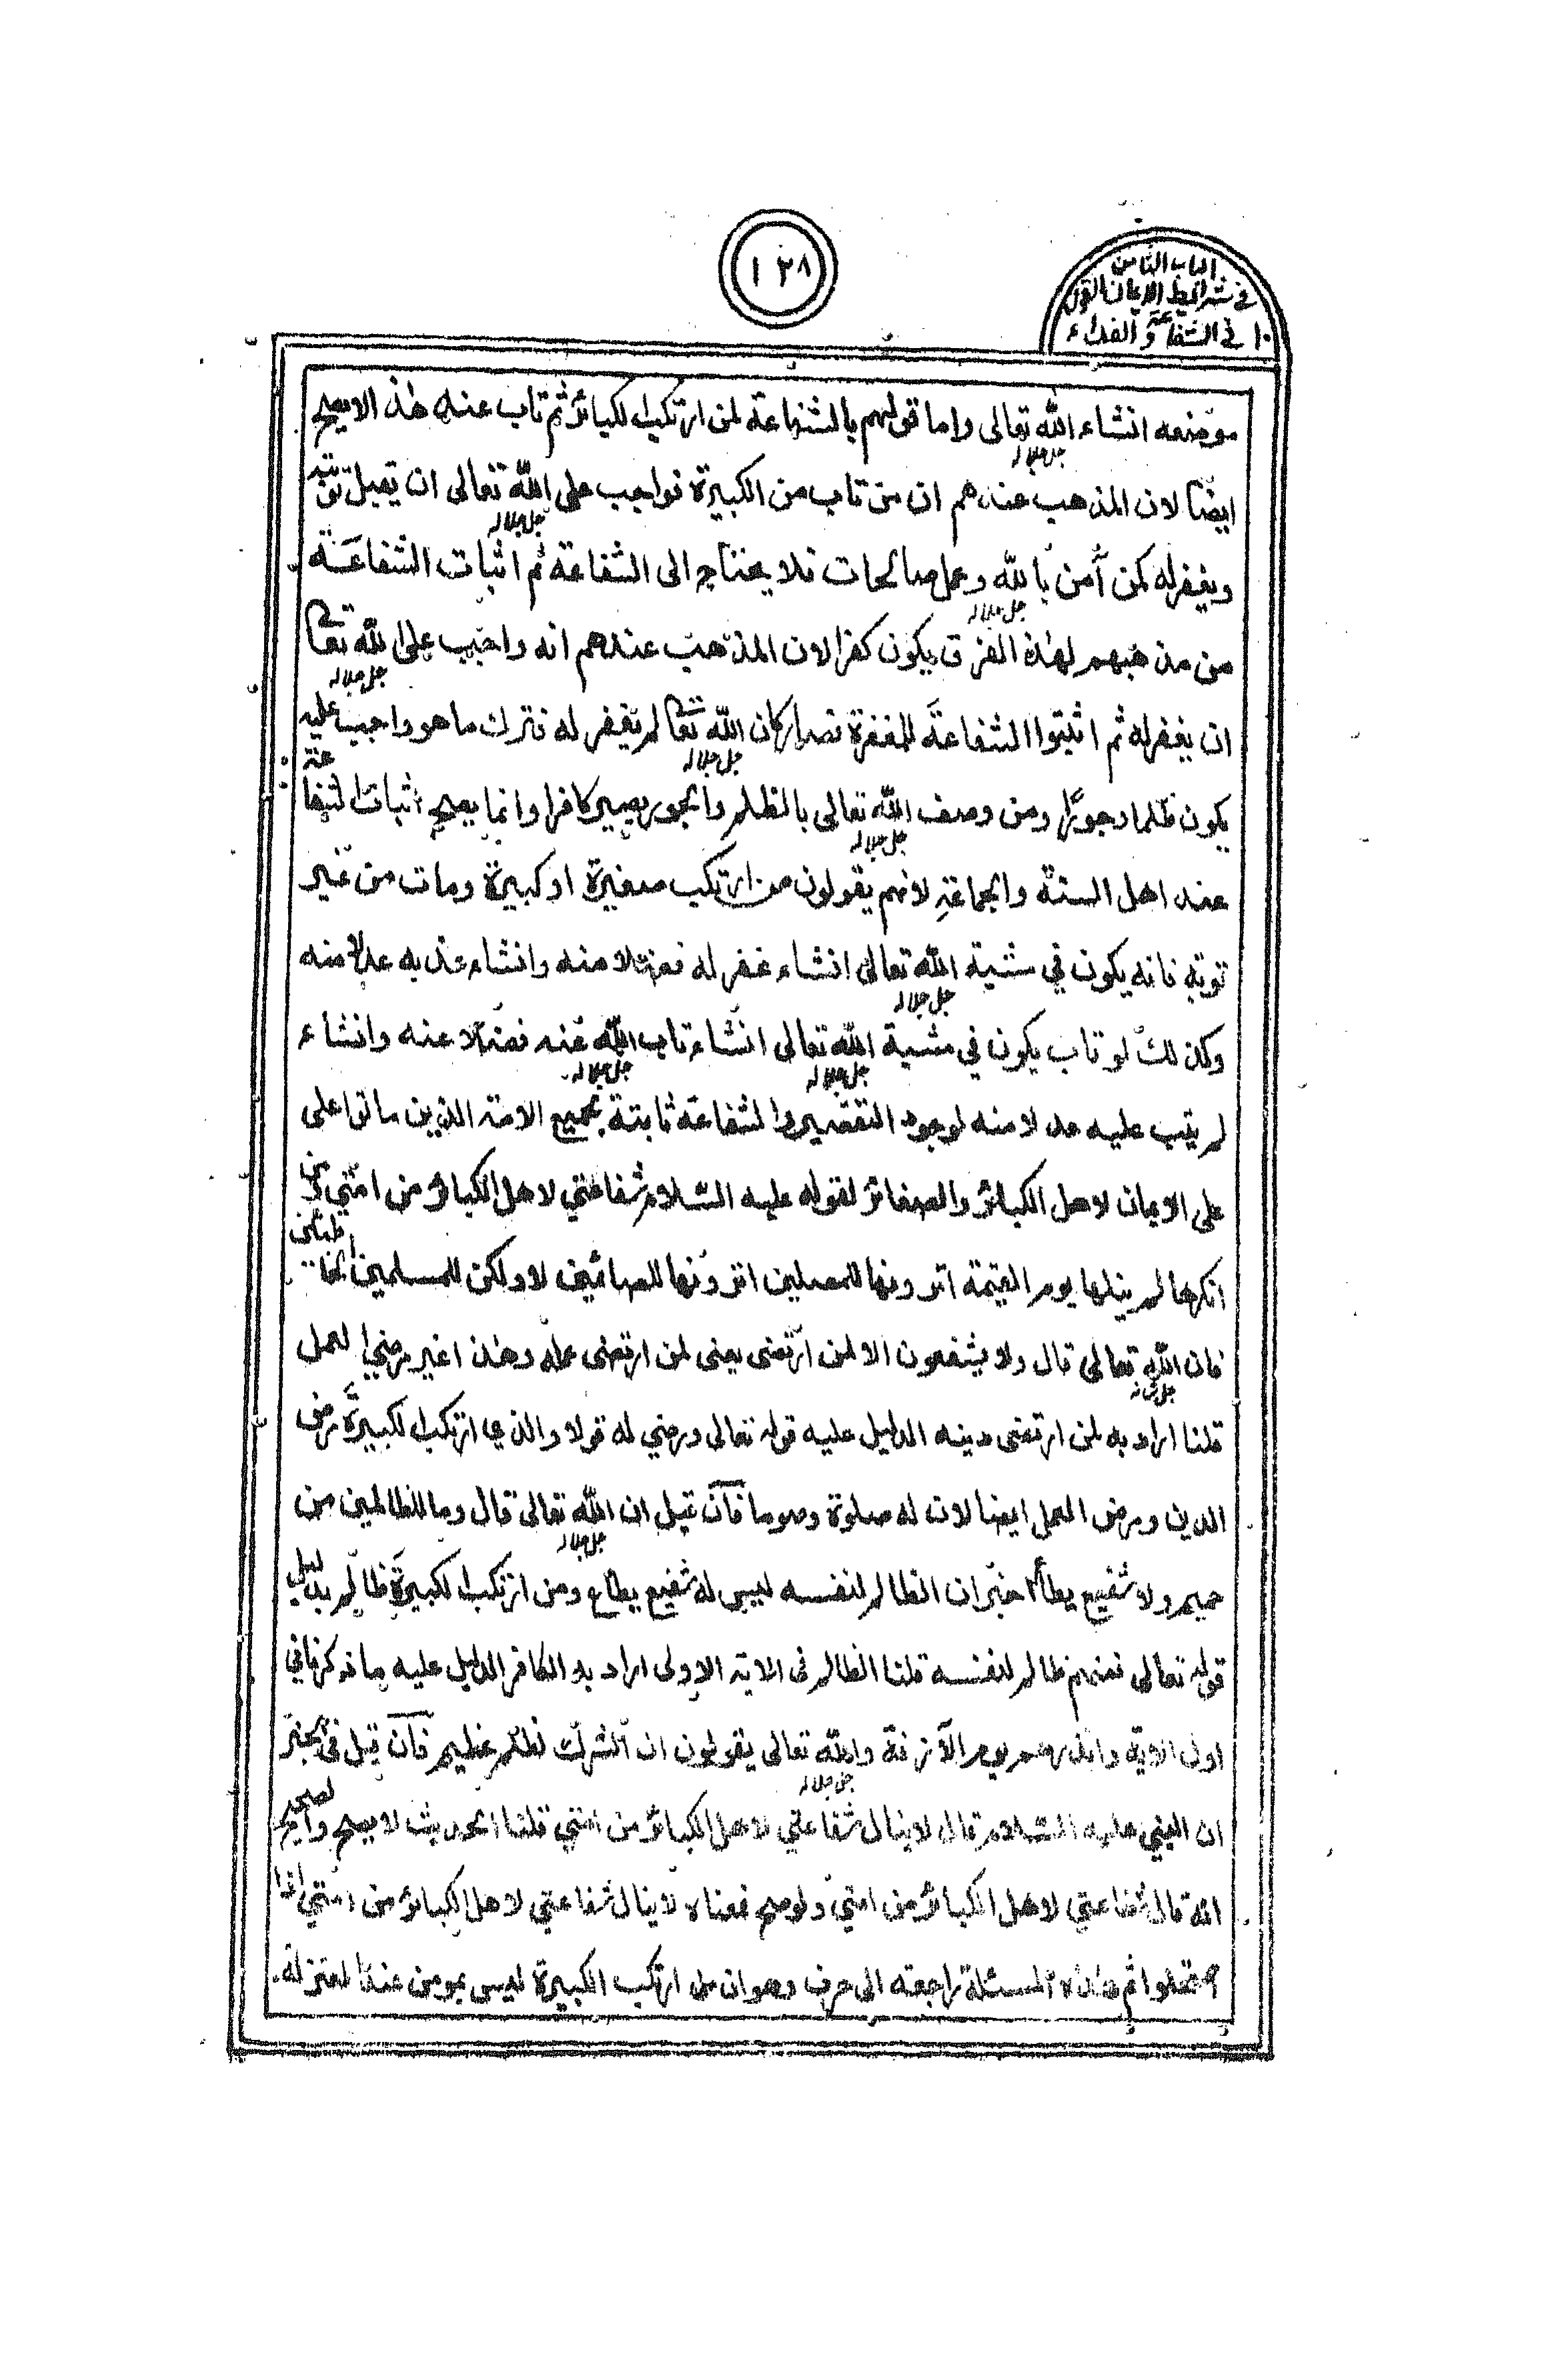 ١٢٨
الباب الثامن
في شرائط الايمان القول
١٠ في الشفاعة والفداء
موضعه انشاء الله تعالى واما قولهم بالشفاعة لمن ارتكب الكبائر ثم تاب عنه هذا لا يصح
جل جلاله
ايضا لان المذهب عندهم ان من تاب من الكبيرة فواجب على الله تعالى ان يقبل توبته
جل جلاله
ويغفر له كمن آمن بالله وعمل صالحات فلا يحتاج الى الشفاعة ثم اثبات الشفاعة
جل جلاله
من مذهبهم لهذه الفرق يكون كفرا لان المذهب عندهم انه واجب على الله تعالى
جل جلاله
ان يغفر له ثم اثبتوا الشفاعة للمغفرة فصار كان الله تعالى لم يغفر له فترك ما هو واجب عليه
جل جلاله
يكون ظلما وجورا ومن وصف الله تعالى بالظلم والجور يصير كافرا وانما يصح اثبات الشفاعة
جل جلاله
عند اهل السنة والجماعة لانهم يقولون من ارتكب صغيرة او كبيرة ومات من غير
توبة فانه يكون في مشية الله تعالى انشاء غفر له فضلا منه وانشاء عذبه عدلا منه
جل جلاله
وكذلك لو تاب يكون في مشية الله تعالى انشاء تاب الله عنه فضلا عنه وانشاء
جل جلاله جل جلاله
لم يتب عليه عدلا منه لوجود التقصير والشفاعة ثابتة بجميع الامة الذين ماتوا على
على الايمان لاهل الكبائر والصغائر لقوله عليه السلام شفاعتي لاهل الكبائر من امتي ومن
انكرها لم ينلها يوم القيمة اترونها للمصلين اترونها للصائمين لا ولكن للمسلمين الخاطئين
فان الله تعالى قال ولا يشفعون الا لمن ارتضى يعنى لمن ارتضى عمله وهذا غير مرضي العمل
جل شانه
قلنا اراد به لمن ارتضى دينه الدليل عليه قوله تعالى ورضي له قولا والذي ارتكب الكبيرة مرضى
الدين ومرض العمل ايضا لان له صلوة وصوما فان قيل ان الله تعالى قال وما للظالمين من
جل جلاله
حميم ولا شفيع يطاع اخبر ان الظالم لنفسه ليس له شفيع يطاع ومن ارتكب الكبيرة ظالم بدليل
قوله تعالى فمنهم ظالم لنفسه قلنا الظالم فى الاية الاولى اراد به الكافر الدليل عليه ما ذكرنا في
اول الاية وانذرهم يوم الآزفة والله تعالى يقولون ان الشرك لظلم عظيم فان قيل فى الخبر
جل جلاله
ان النبي عليه السلام قال لا ينال شفاعتي لاهل الكبائر من امتي قلنا الحديث لا يصح والصحيح
انه قال شفاعتي لاهل الكبائر من امتي ولو صح فمعناه لا ينال شفاعتي لاهل الكبائر من امتي اذا
ثم هذه المسئلة راجعة الى حرف وهو ان من ارتكب الكبيرة ليس بمومن عند المعتزلة